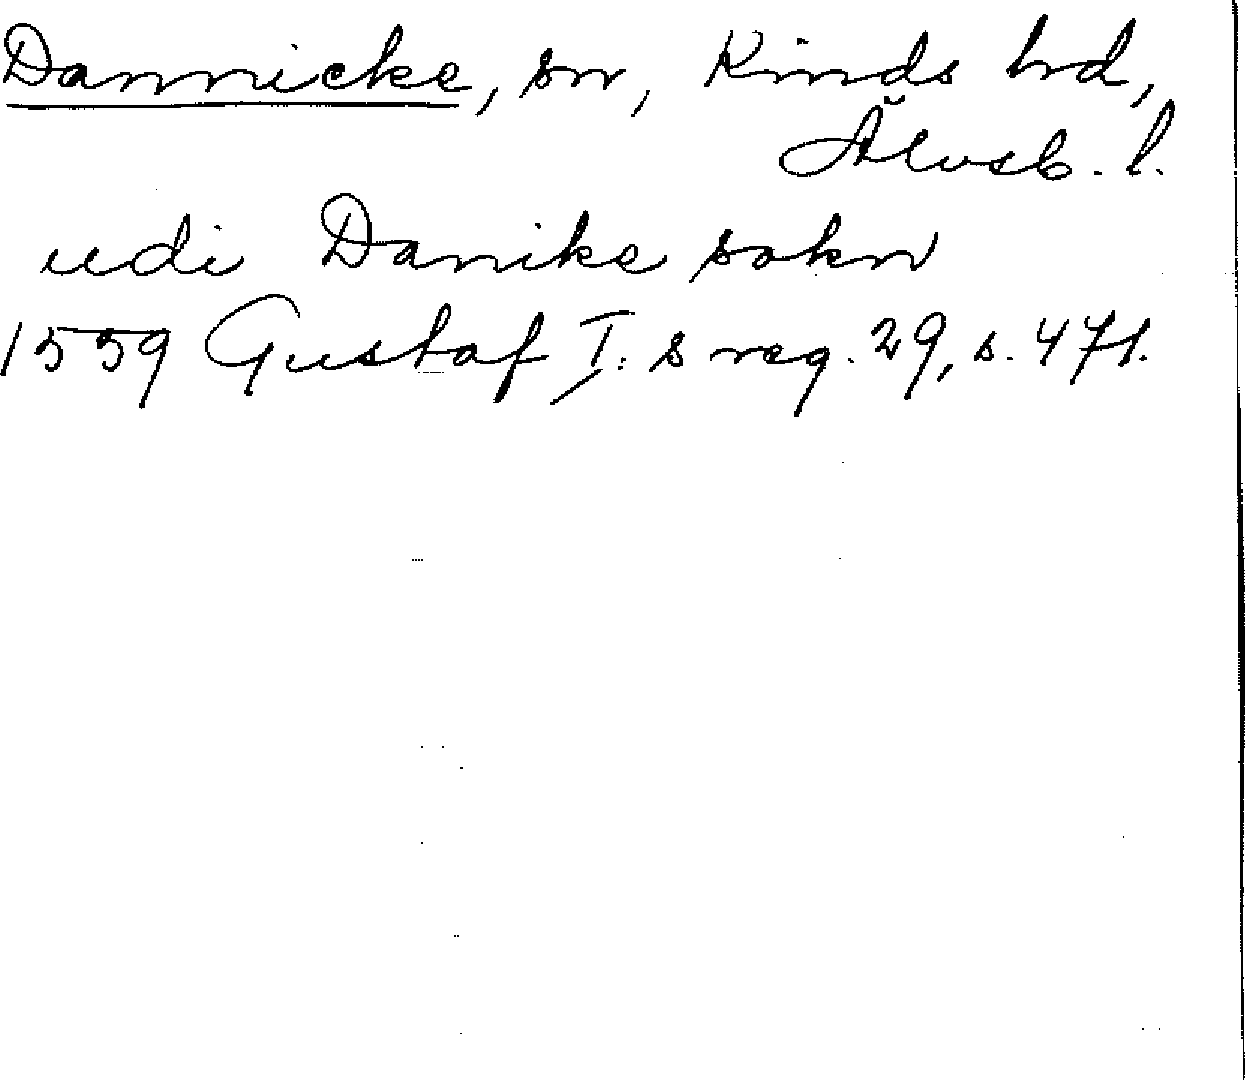 Dannicke, sn, Kinds hd,
Älvsb. l.
udi Danike sokn
1559 Gustaf I:s reg. 29, s. 471.